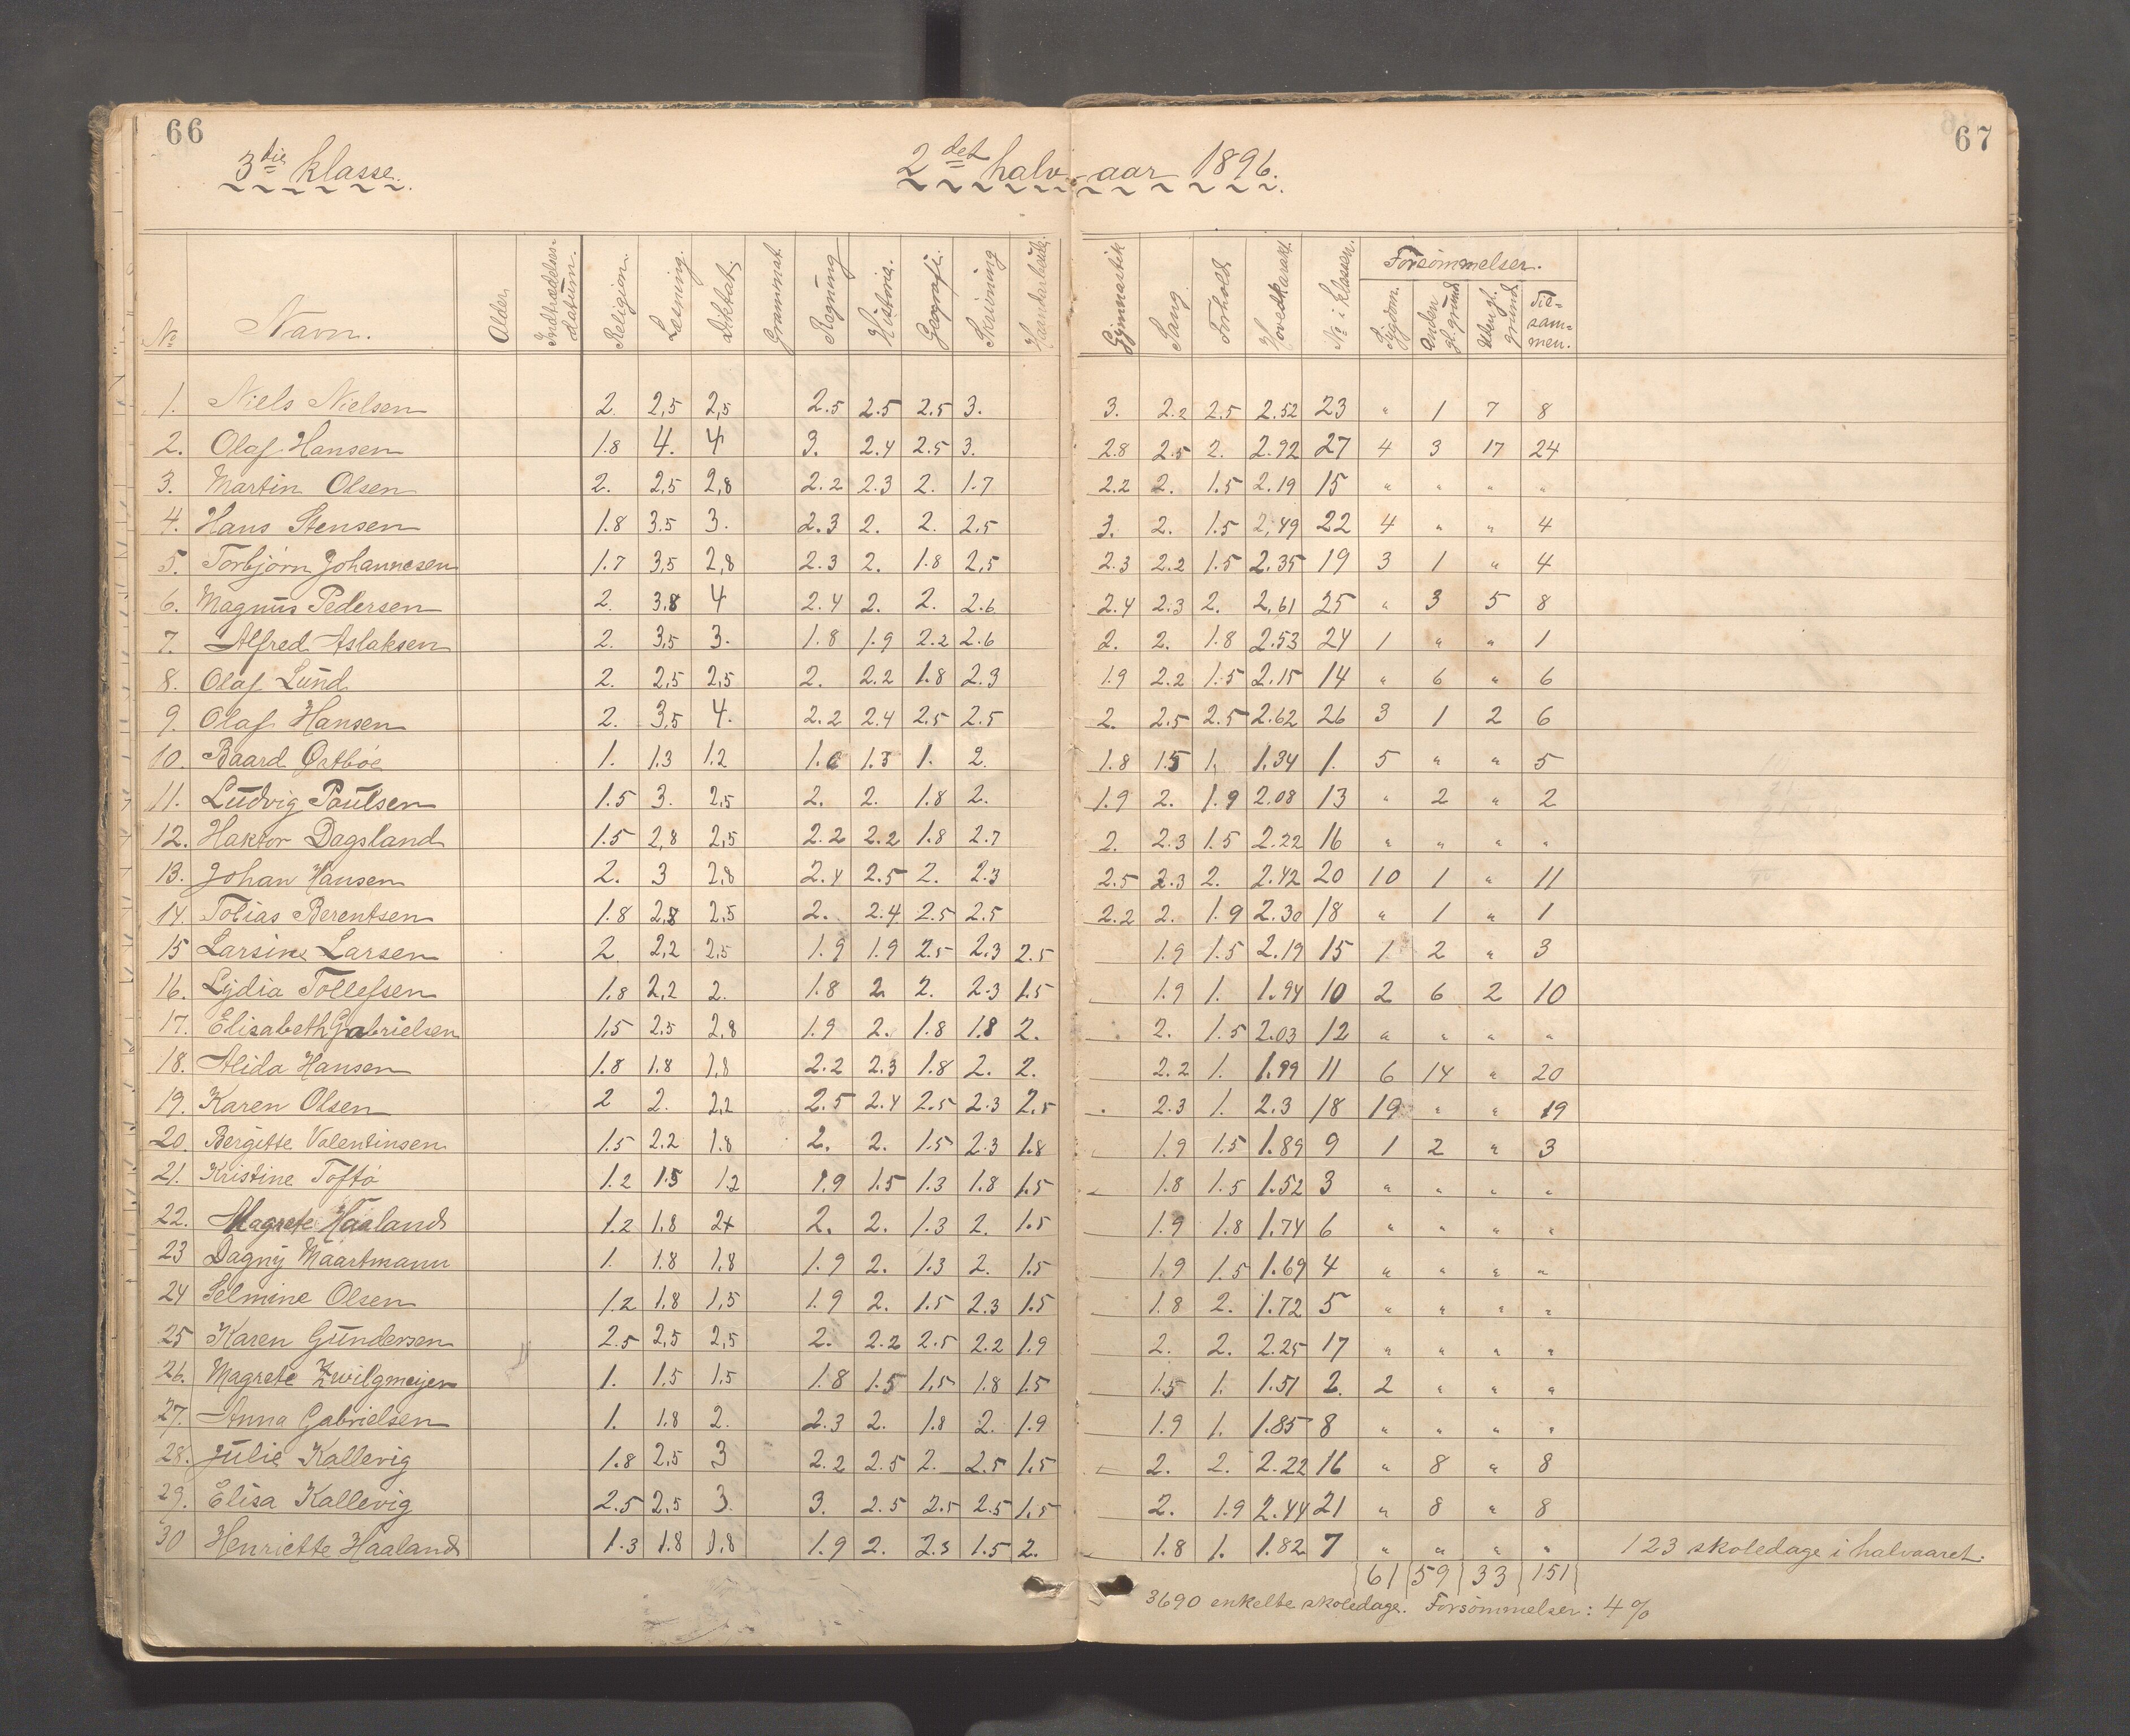 66
67
3die klasse.
2det halv-aar 1896.
No Navn. Alder Indtrædelses-datum. Religion. Læsning. Diktat. Grammat. Regning Historie. Geografi. Skrivning Haandarbeide. Gymnastik Sang. Forhold Hovedkarakt. No i klassen. Forsømmelser. Sygdom. Anden gl. grund Uden gl. grund Til=sam=men.
1. Niels Nielsen 2. 2,5 2,5 2.5 2.5 2.5 3. 3. 2.2 2.5 2.52 23 " 1 7 8
2. Olaf Hansen 1.8 4. 4 3. 2.4 2.5 3. 2.8 2.5 2. 2.92 27 4 3 17 24
3. Martin Olsen 2. 2,5 2,8 2.2 2.3 2. 1.7 2.2 2. 1.5 2.19 15 " " " "
4. Hans Stensen 1.8 3.5 3. 2.3 2. 2. 2.5 3. 2. 1.5 2.49 22 4 " " 4
5. Torbjørn Johannesen 1.7 3,5 2,8 2.3 2. 1.8 2,5 2.3 2.2 1.5 2.35 19 3 1 " 4
6. Magnus Pedersen 2. 3,8 4 2.4 2. 2. 2.6 2.4 2.3 2. 2,61 25 " 3 5 8
7. Alfred Aslaksen 2. 3,5 3. 1.8 1.9 2.2 2.6 2. 2. 1.8 2.53 24 1 " " 1
8. Olaf Lund 2. 2,5 2,5 2. 2.2 1.8 2.3 1.9 2.2 1.5 2.15 14 " 6 " 6
9. Olaf Hansen 2. 3,5 4. 2.2 2.4 2.5 2.5 2. 2.5 2.5 2.62 26 3 1 2 6
10. Baard Østbøe 1. 1.3 1.2 1. 1. 2. 1.8 1.5 1. 1.34 1. 5 " " 5
11. Ludvig Paulsen 1.5 3. 2,5 2. 2. 1.8 2. 1.9 2. 1.9 2.08 13 " 2 " 2
12. Haktor Dagsland 1.5 2,8 2,5 2.2 2.2 1.8 2.7 2. 2.3 1.5 2.22 16 " " " "
13. Johan Hansen 2. 3 2,8 2.4 2.5 2. 2.3 2.5 2.3 2. 2.42 20 10 1 " 11
14. Tobias Berentsen 1.8 2,8 2,5 2. 2.4 2.5 2.5 2.2 2. 1.9 2.30 18 " 1 " 1
15 Larsine Larsen 2. 2,2 2,5 1.9 1.9 2.5 2.3 2.5 1.9 1.5 2.19 15 1 2 " 3
16. Lydia Tollefsen 1.8 2,2 2. 1.8 2. 2. 2.3 1.5 1.9 1. 1.94 10 2 6 2 10
17. Elisabeth Gabrielsen 1,5 2,5 2,8 1.9 2. 1.8 1.8 2. 2. 1.5 2.03 12 " " " "
18. Alida Hansen 1.8 1.8 1,8 2.2 2.3 1.8 2. 2. 2.2 1. 1.99 11 6 14 " 20
19. Karen Olsen 2 2. 2,2 2.5 2.4 2.5 2.3 2.5 2.3 1. 2.3 18 19 " " 19
20. Bergitte Valentinsen 1.5 2.2 1.8 2. 2. 1.5 2.3 1.8 1.9 1.5 1.89 9 1 2 " 3
21. Kristine Toftø 1.2 1.5 1.2 1.9 1.5 1.3 1.8 1.5 1.8 1.5 1.52 3 " " " "
22. Magrete Haaland 1.2 1.8 2+ 2. 2. 1.3 2. 1.5 1.9 1.8 1.74 6 " " " "
23 Dagny Maartmann 1. 1.8 1,8 1.9 2. 1.3 2. 1.5 1.9 1.5 1.69 4 " " " "
24 Selmine Olsen 1.2 1.8 1,5 1.9 2. 1.5 2.3 1.5 1.8 2. 1.72 5 " " " "
25 Karen Gundersen 2.5 2,5 2,5 2. 2.2 2.5 2.2 1.9 2. 2. 2.25 17 " " " "
26. Magrete Zwilgmeyer 1. 1,5 1,5 1.8 1.5 1.5 1.8 1.5 1.5 1. 1.51 2. 2 " " "
27. Anna Gabrielsen 1. 1.8 2. 2.3 2. 1.8 2. 1.9 1.9 1. 1.85 8 " " " "
28. Julie Kallevig 1.8 2,5 3 2.2 2.5 2. 2.5 1.5 2. 2. 2.22 16 " 8 " 8
29. Elisa Kallevig 2.5 2,5 3. 3. 2.5 2.5 2.5 1.5 2. 1.9 2.44 21 " 8 " 8
30 Henriette Haaland 1.3 1.8 1,8 1.9 2. 2.3 1.5 2. 1.8 1. 1.82 7 " " " " 123 skoledage i halvaaret.
61 59 33 151
3690 enkelte skoledage. Forsømmelser: 4%